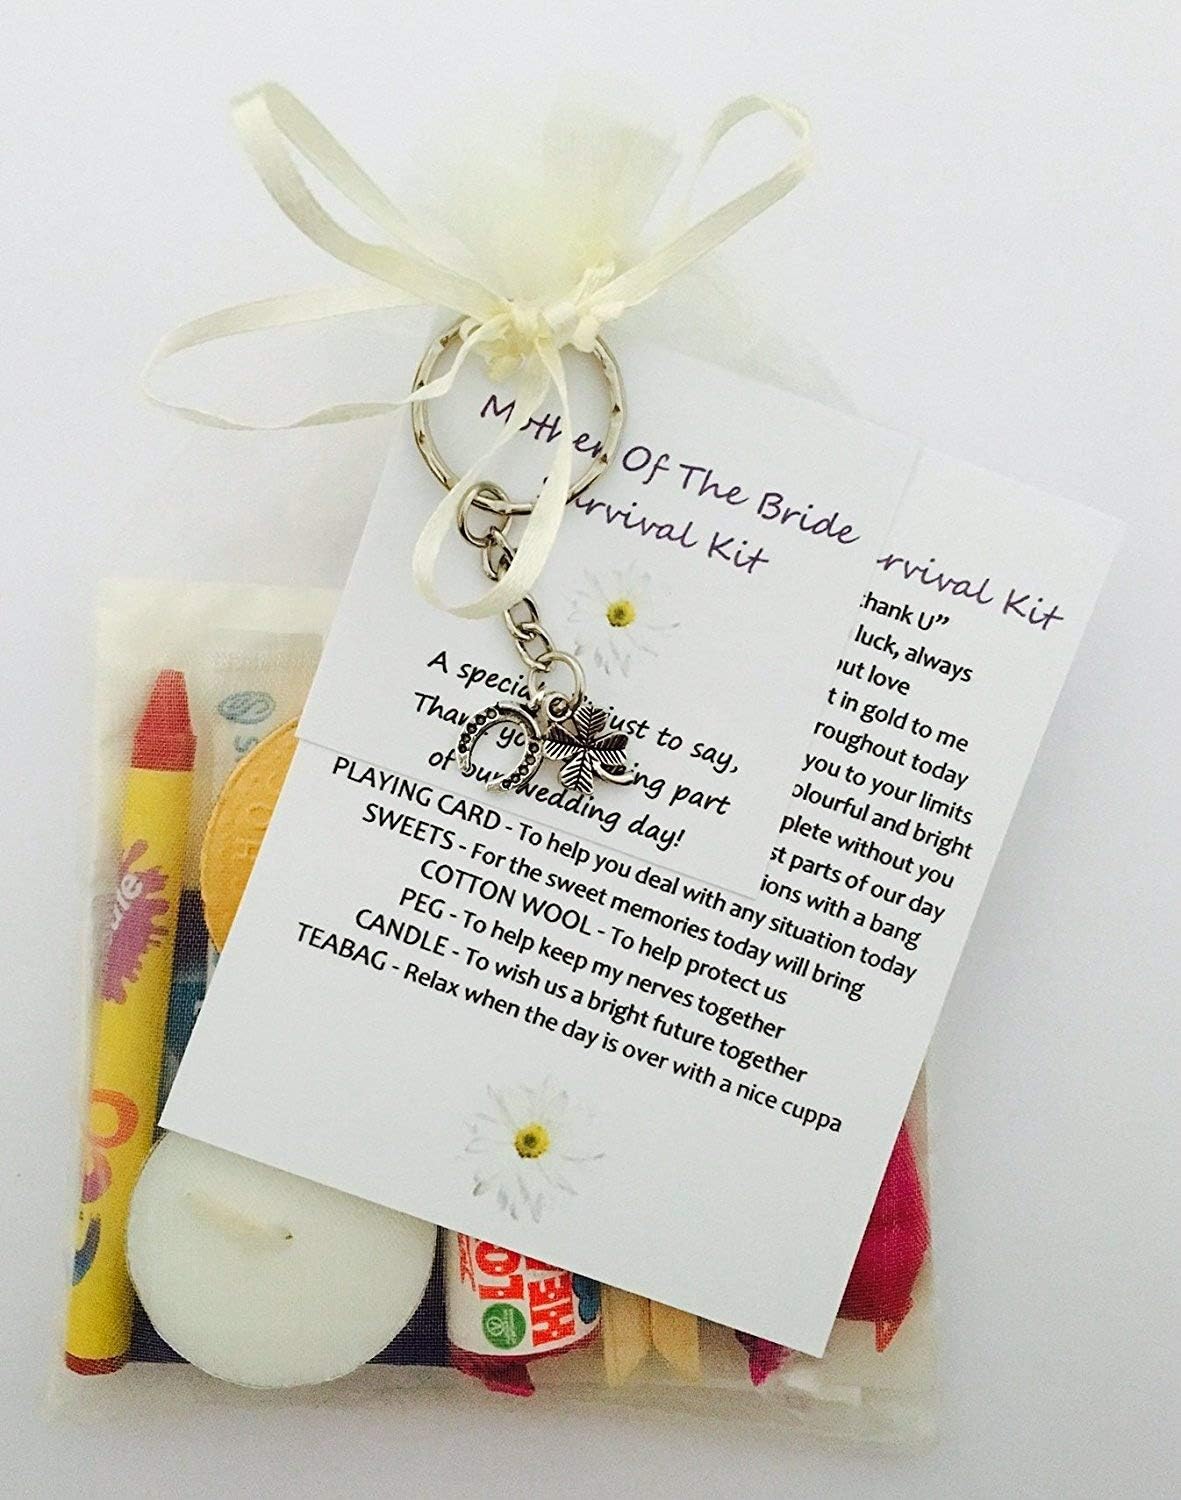 Mother Of The Bride
Survival Kit
A special just to say,
Thank you being part
of our wedding day!
PLAYING CARD - To help you deal with any situation today
SWEETS - For the sweet memories today will bring
COTTON WOOL - To help protect us
PEG - To help keep my nerves together
CANDLE - To wish us a bright future together
TEABAG - Relax when the day is over with a nice cuppa
rvival Kit
hank U”
luck, always
ut love
t in gold to me
roughout today
you to your limits
olourful and bright
plete without you
st parts of our day
ions with a bang